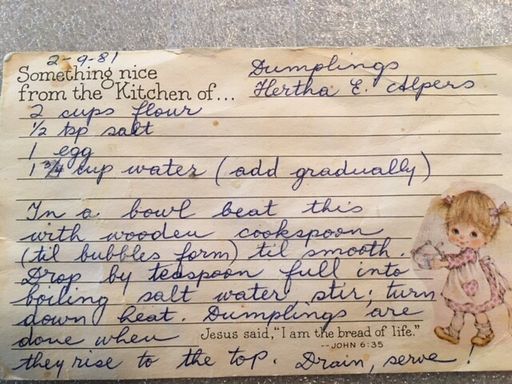 2-9-81
Something nice
from the Kitchen of...
Dumplings
Hertha E. Alpers
2 cups flour
1/2 tsp salt
1 egg
1 3/4 cup water (add gradually)
In a bowl beat this
with wooden cookspoon
(til bubbles form) til smooth.
Drop by teaspoon full into
boiling salt water, stir; turn
down heat. Dumplings are
done when
Jesus said, "I am the bread of life."
--JOHN 6:35
they rise to the top. Drain, serve!